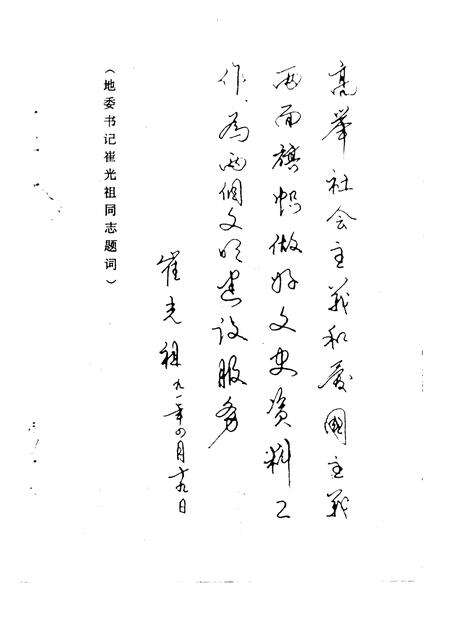 高举社会主义和爱国主义
两面旗帜做好文史资料工
作.为两個文明建设服务
崔光祖九一年四月十九日
(地委书记崔光祖同志题词)